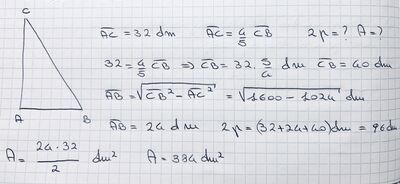 C
A̅C̅ = 32 dm A̅C̅ = 4/5 C̅B̅ 2p = ? A = ?
32 = 4/5 C̅B̅ ⇒ C̅B̅ = 32 · 5/4 dm C̅B̅ = 40 dm
A̅B̅ = √(C̅B̅² − A̅C̅²) = √(1600 − 1024) dm
A B
A̅B̅ = 24 dm 2p = (32+24+40) dm = 96 dm
A = (24 · 32)/2 dm² A = 384 dm²